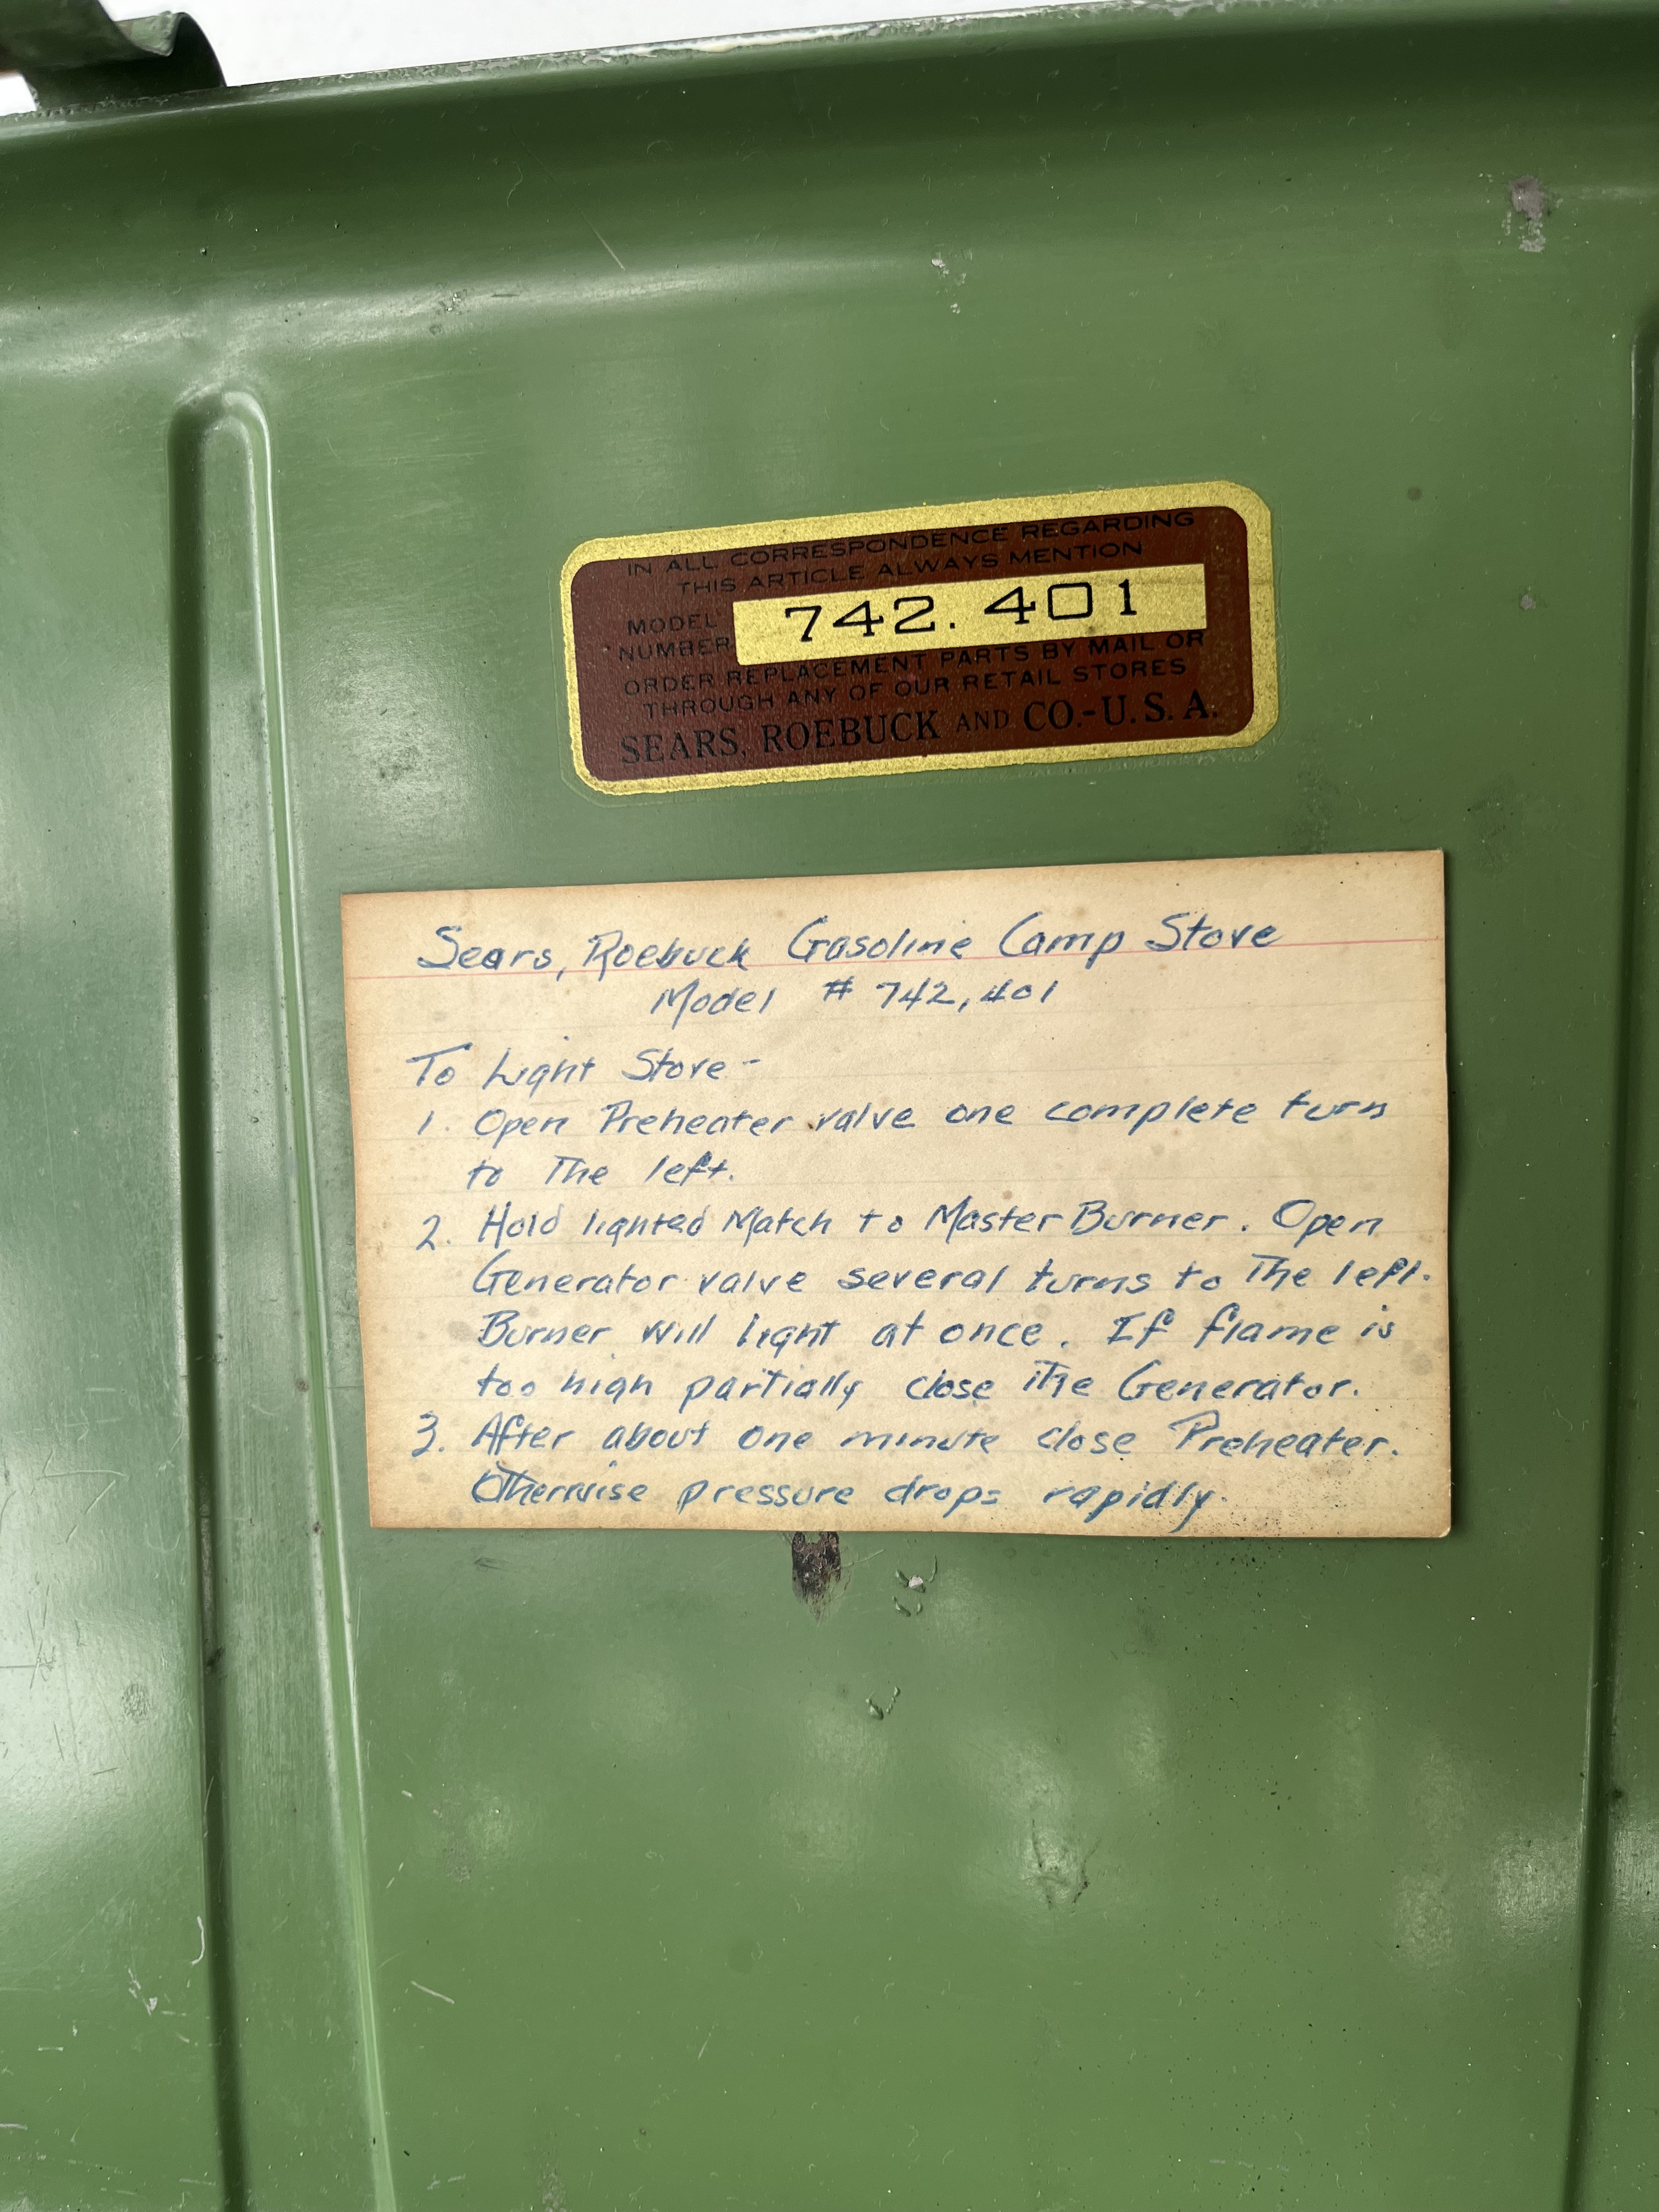 IN ALL CORRESPONDENCE REGARDING
THIS ARTICLE ALWAYS MENTION
MODEL NUMBER 742.401
ORDER REPLACEMENT PARTS BY MAIL OR
THROUGH ANY OF OUR RETAIL STORES
SEARS, ROEBUCK AND CO.-U.S.A.
Sears, Roebuck Gasoline Camp Stove
Model # 742,401
To Light Stove -
1. Open Preheater valve one complete turn
to The left.
2. Hold lighted Match to Master Burner. Open
Generator valve several turns to The left.
Burner will light at once. If flame is
too high partially close The Generator.
3. After about one minute close Preheater.
Otherwise pressure drops rapidly.